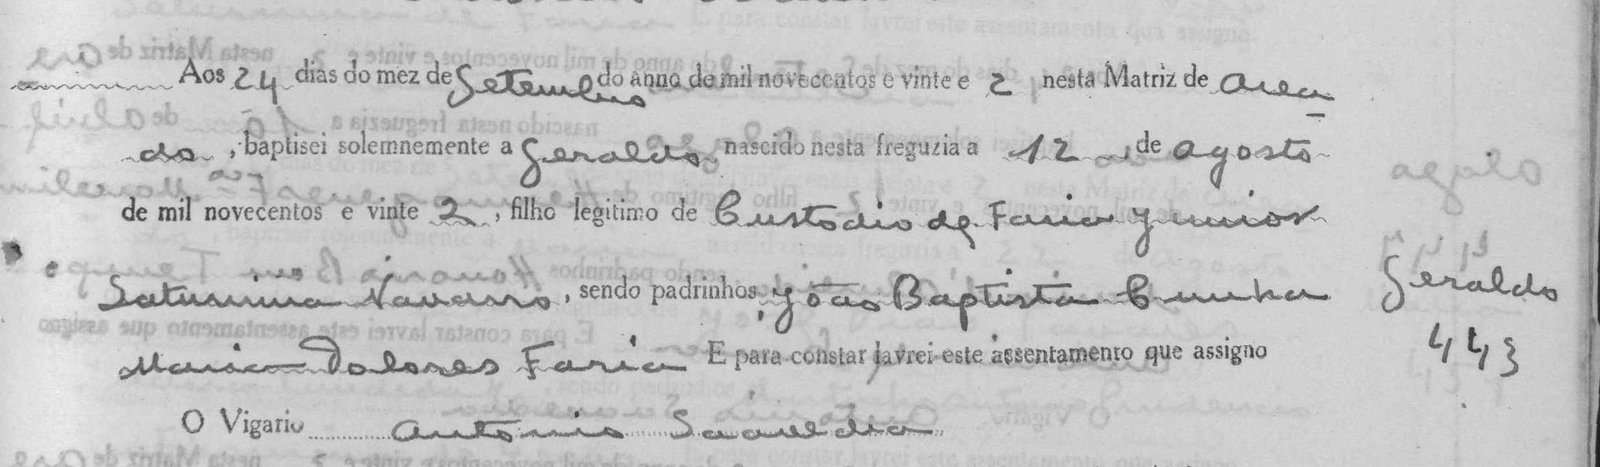 Aos 24 dias do mez de Setembro do anno de mil novecentos e vinte e 2 nesta Matriz de Area
do, baptisei solemnemente a Geraldo nascido nesta freguzia a 12 de agosto
de mil novecentos e vinte 2, filho legitimo de Custodio de Faria Junior
e Saturnina Navarro, sendo padrinhos, João Baptista Cunha
Maria Dolores Faria E para constar lavrei este assentamento que assigno
O Vigario Antonio Saavedra
Geraldo
443